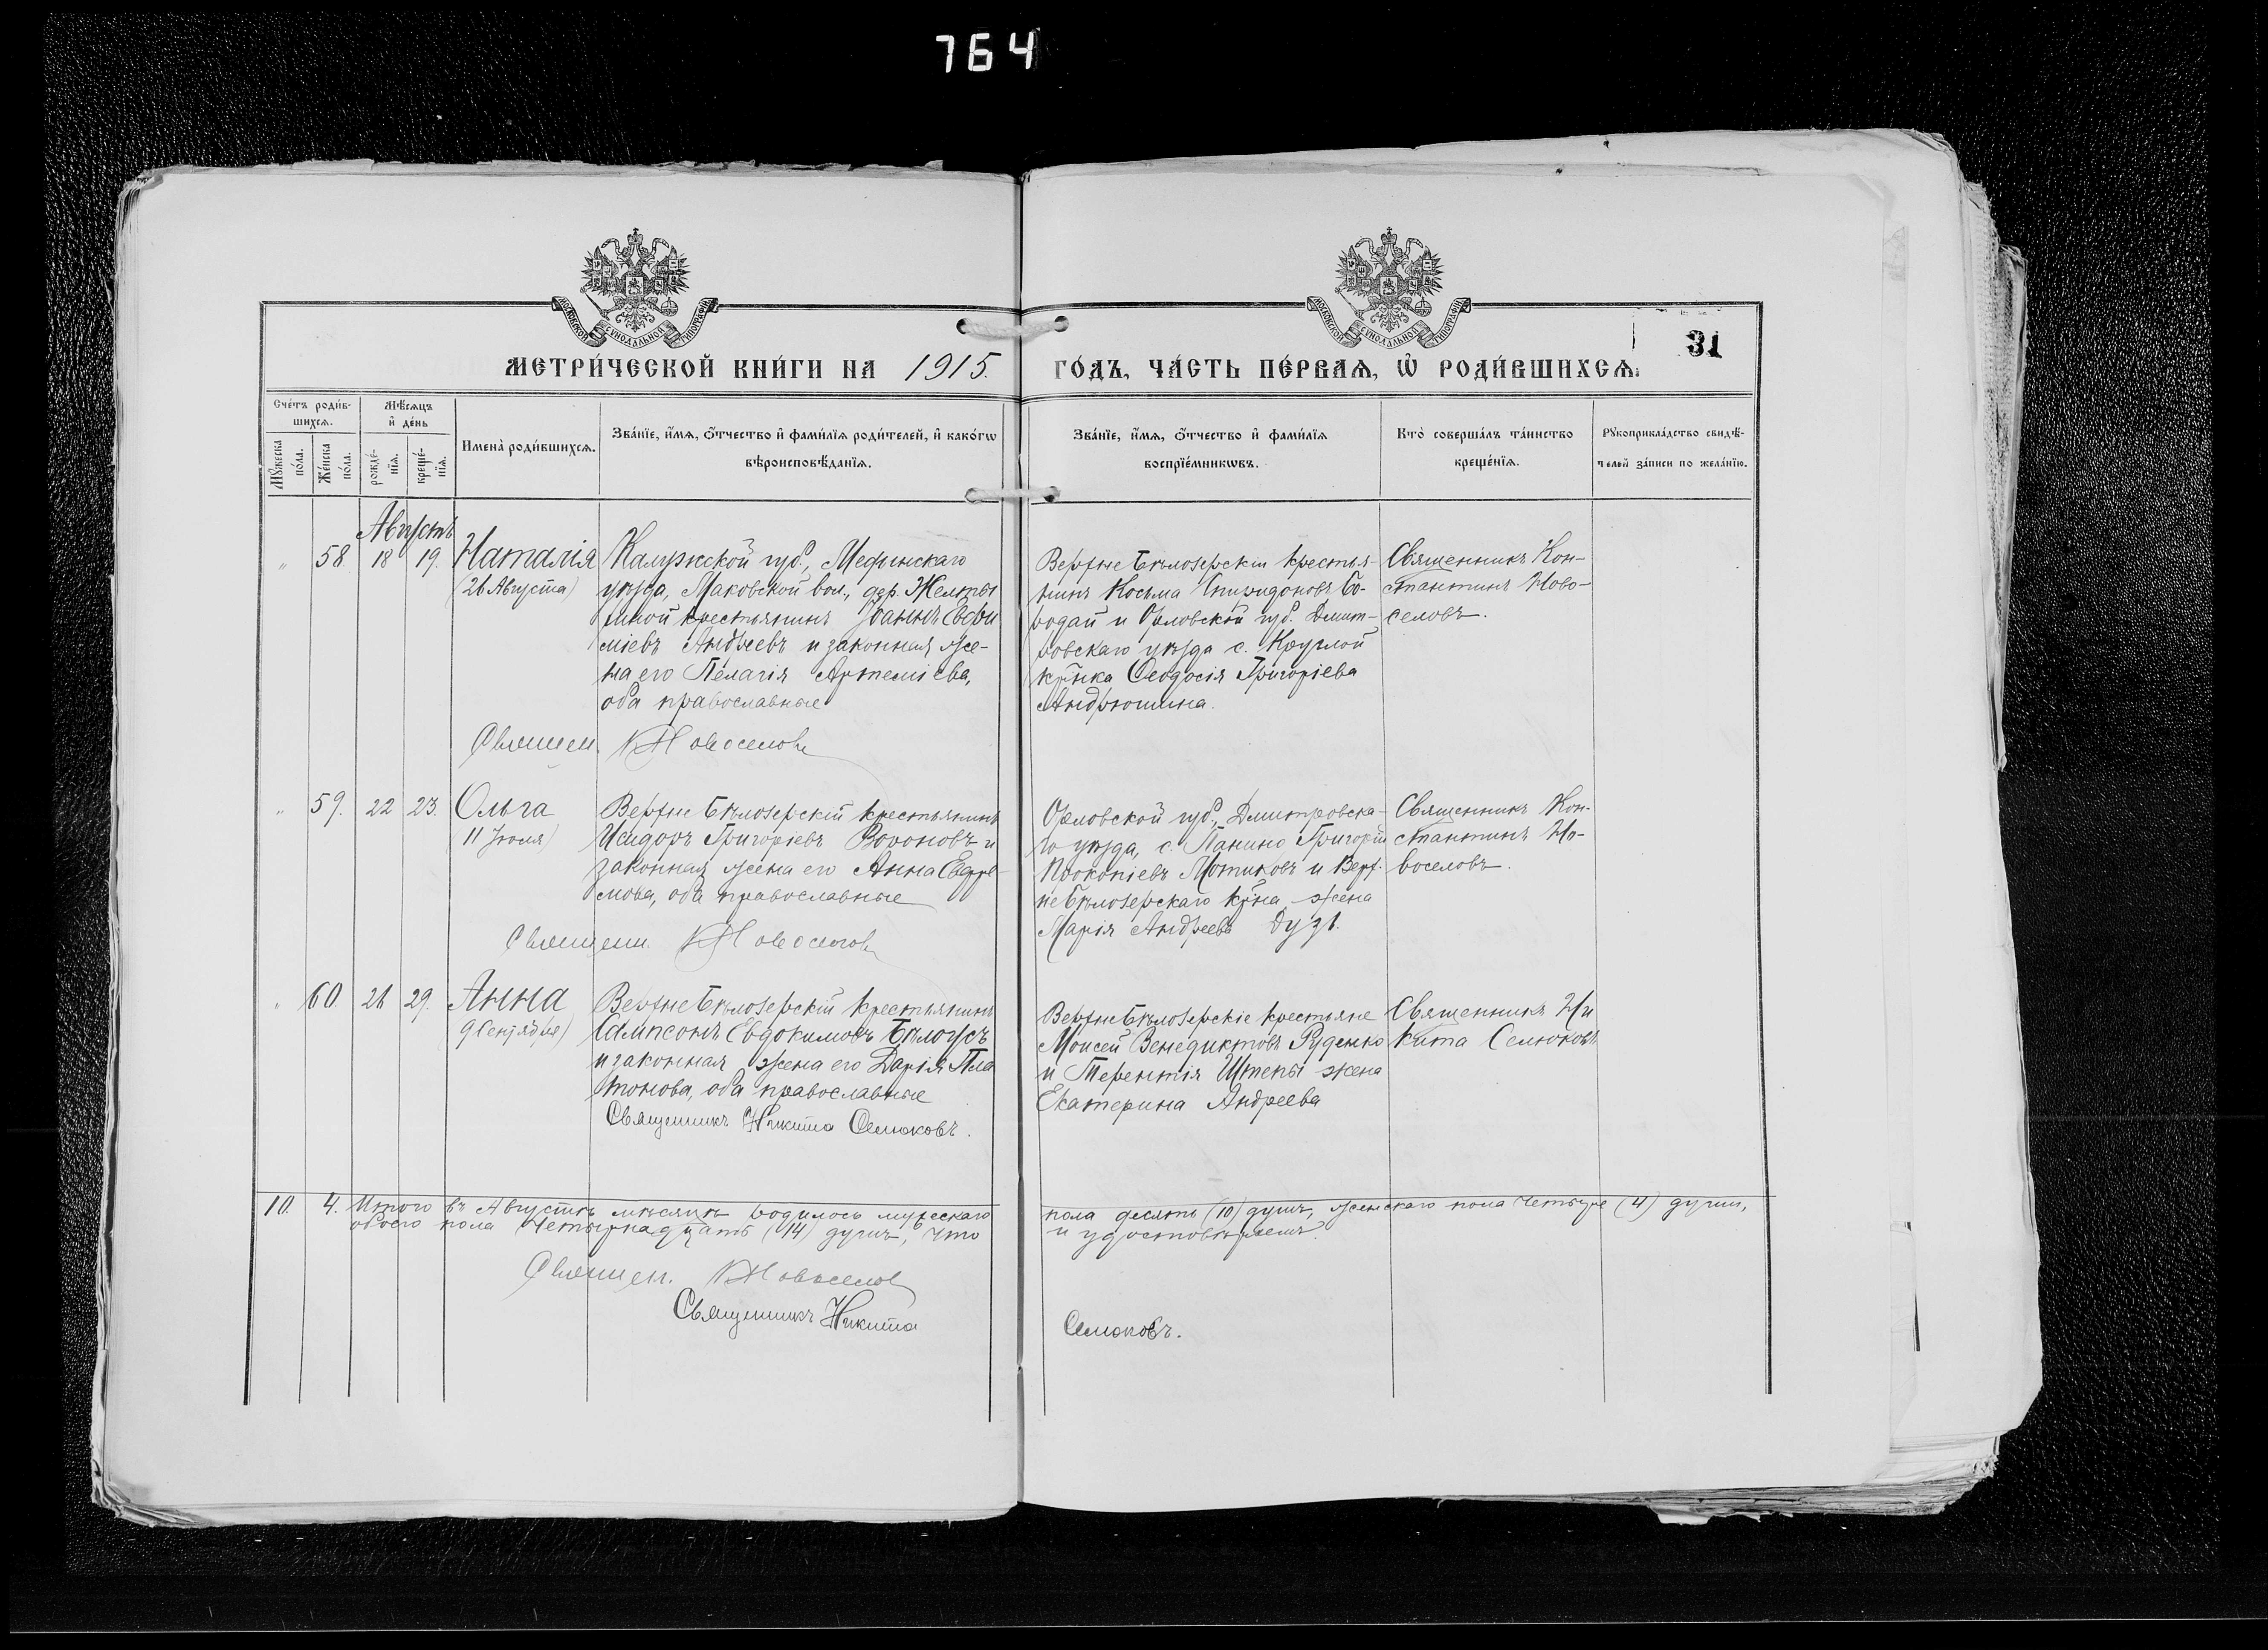 764
МОСКОВСКОЙ СѴНОДАЛЬНОЙ ТИПОГРАФІИ
МОСКОВСКОЙ СѴНОДАЛЬНОЙ ТИПОГРАФІИ
31
МЕТРИ́ЧЕСКОЙ КНИ́ГИ НА 1915. ГО́ДЪ, ЧА́СТЬ ПЕ́РВАѦ, Ѡ҆ РОДИ́ВШИХСѦ.
Сче́тъ роди́в-
шихсѧ.
Мꙋ́жеска
по́ла.
Же́нска
по́ла.
Мѣ́сѧцъ
и҆ де́нь
рожде́-
нїѧ.
креще́-
нїѧ.
Имена̀ роди́вшихсѧ.
Зва́нїе, и҆́мѧ, ѻ҆́тчество и҆ фами́лїѧ роди́телей, и҆ како́гѡ
вѣроисповѣ́данїѧ.
Зва́нїе, и҆́мѧ, ѻ҆́тчество и҆ фами́лїѧ
воспрїе́мникѡвъ.
Кто̀ соверша́лъ та́инство
креще́нїѧ.
Рꙋкоприкла́дство свидѣ́-
телей за́писи по жела́нїю.
Августъ
" 58. 18 19. Наталія
(26 Августа)
Калужской губ., Медынскаго
уѣзда, Маковской вол., дер. Желты
шной крестьянинъ Іоаннъ Евфи
міевъ Андреевъ и законная же-
на его Пелагія Артеміева,
оба православные
Верхне Бѣлозерскій крестья-
нинъ Косьма Спиридоновъ Бо-
родай и Орловской губ. Дмит-
ровскаго уѣзда с. Круглой
кр-нка Ѳеодосія Григоріева
Андрюшина.
Священникъ Кон-
стантинъ Ново-
селовъ.
Священ. К Новоселовъ
" 59. 22 23. Ольга
11 Іюля)
Верхне Бѣлозерскій крестьянинъ
Исидоръ Григоріевъ Вороновъ и
законная жена его Анна Ефре-
мова, оба православные
Орловской губ., Дмитровска-
го уѣзда, с. Панино Григорій
Прокопіевъ Мотиковъ и Верх-
не Бѣлозерскаго кр-на жена
Марія Андреева
Священникъ Кон-
стантинъ Но-
воселовъ.
Священ. К Новоселовъ
" 60. 28 29. Анна
9 Сентября)
Верхне Бѣлозерскій крестьянинъ
Сампсонъ Евдокимовъ Бѣлоусъ
и законная жена его Дарія Пла
тонова, оба православные
Священникъ Никита Семюковъ.
Верхне Бѣлозерскіе крестьяне
Моисей Венедиктовъ Руденко
и Терентія Штепы жена
Екатерина Андреева
Священникъ Ни
кита Семюковъ
10. 4. Итого въ Августѣ мѣсяцѣ родилось мужескаго пола десять (10) душъ, женскаго пола четыре (4) души,
обоего пола четырнадцать (14) душъ, что и удостовѣряемъ.
Священ. К Новоселовъ
Священникъ Никита Семюковъ.